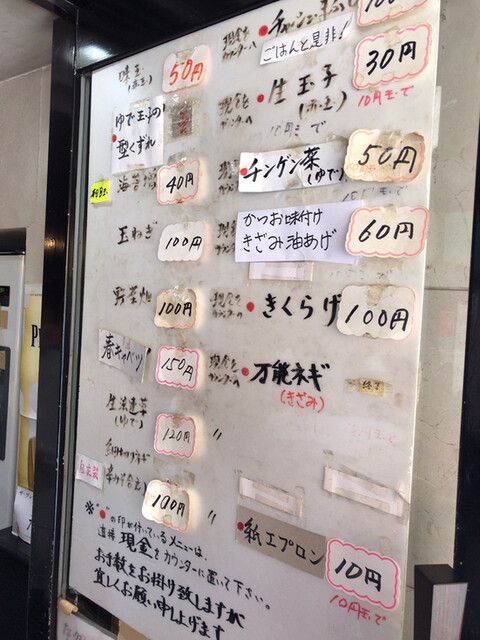 味玉
(赤玉)
50円
ゆで玉子の
型くずれ
海苔増
40円
玉ねぎ
100円
野菜畑
100円
春キャベツ
150円
生ほうれん草
(ゆで)
120円
〃
100円
〃
現金を
カウンターへ
ごはんと是非!
100円
現金を
カウンターへ
●生玉子
(赤玉)
30円
10月まで
●チンゲン菜
(ゆで)
50円
かつお味付け
きざみ油あげ
60円
現金を
カウンターへ
●きくらげ
100円
現金を
カウンターへ
●万能ネギ
(きざみ)
終了
●紙エプロン
10円
10月まで
※"●"の印が付いているメニューは、
直接現金をカウンターに置いて下さい。
お手数をお掛け致しますが
宜しくお願い申し上げます